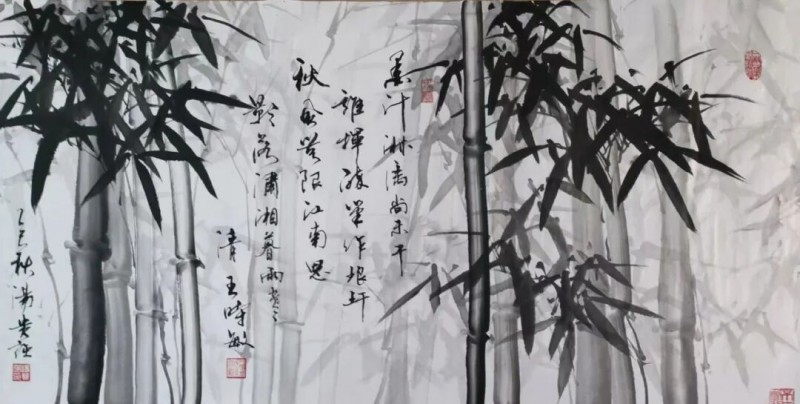 墨汁淋漓尚未干
誰揮筆作琅玕
秋風無限江南思
影落瀟湘暮雨寒
清 王時敏
乙巳秋